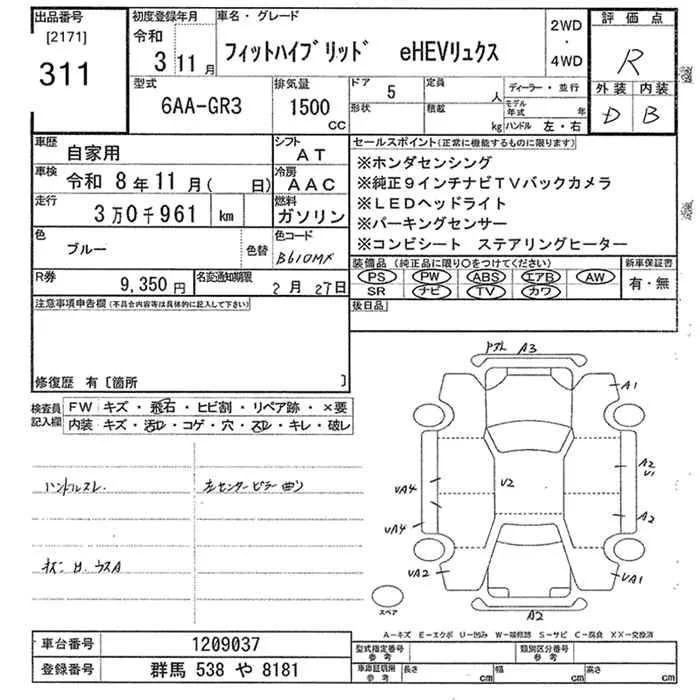 出品番号
[2171]
311
初度登録年月
令和
3 11月
車名・グレード
フィットハイブリッド eHEVリュクス
2WD
・
4WD
評価点
R
外装 内装
D B
型式
6AA-GR3
排気量
1500
CC
ドア
5
定員
人
形状
積載
kg
ディーラー・並行
モデル年式 年
ハンドル 左・右
車歴
自家用
シフト
AT
車検
令和 8年11月( 日)
冷房
AAC
走行
3万0千961 km
燃料
ガソリン
色
ブルー
色替
色コード
B610MX
R券
9,350円
名変通知期限
2月 27日
セールスポイント(正常に機能するものに限ります)
※ホンダセンシング
※純正9インチナビTVバックカメラ
※LEDヘッドライト
※パーキングセンサー
※コンビシート ステアリングヒーター
装備品 (純正品に限り○をつけてください)
PS PW ABS エアB AW
SR ナビ TV カワ
新車保証書
有・無
後日品
注意事項申告欄(不具合内容等は具体的に記入して下さい)
修復歴 有〔箇所 〕
検査員記入欄
FW キズ・飛石・ヒビ割・リペア跡・×要
内装 キズ・汚レ・コゲ・穴・スレ・キレ・破レ
ハンドルスレ
左センターピラー曲り
A3
A1
A2
U1
A2
UA1
A2
UA2
UA4
UA4
U2
スペア
A-キズ E-エクボ U-凹み W-補修跡 S-サビ C-腐食 XX-交換済
車台番号
1209037
登録番号
群馬 538 や 8181
型式指定番号
参考
類別区分番号
参考
車庫証明用
参考
長さ cm
幅 cm
高さ cm